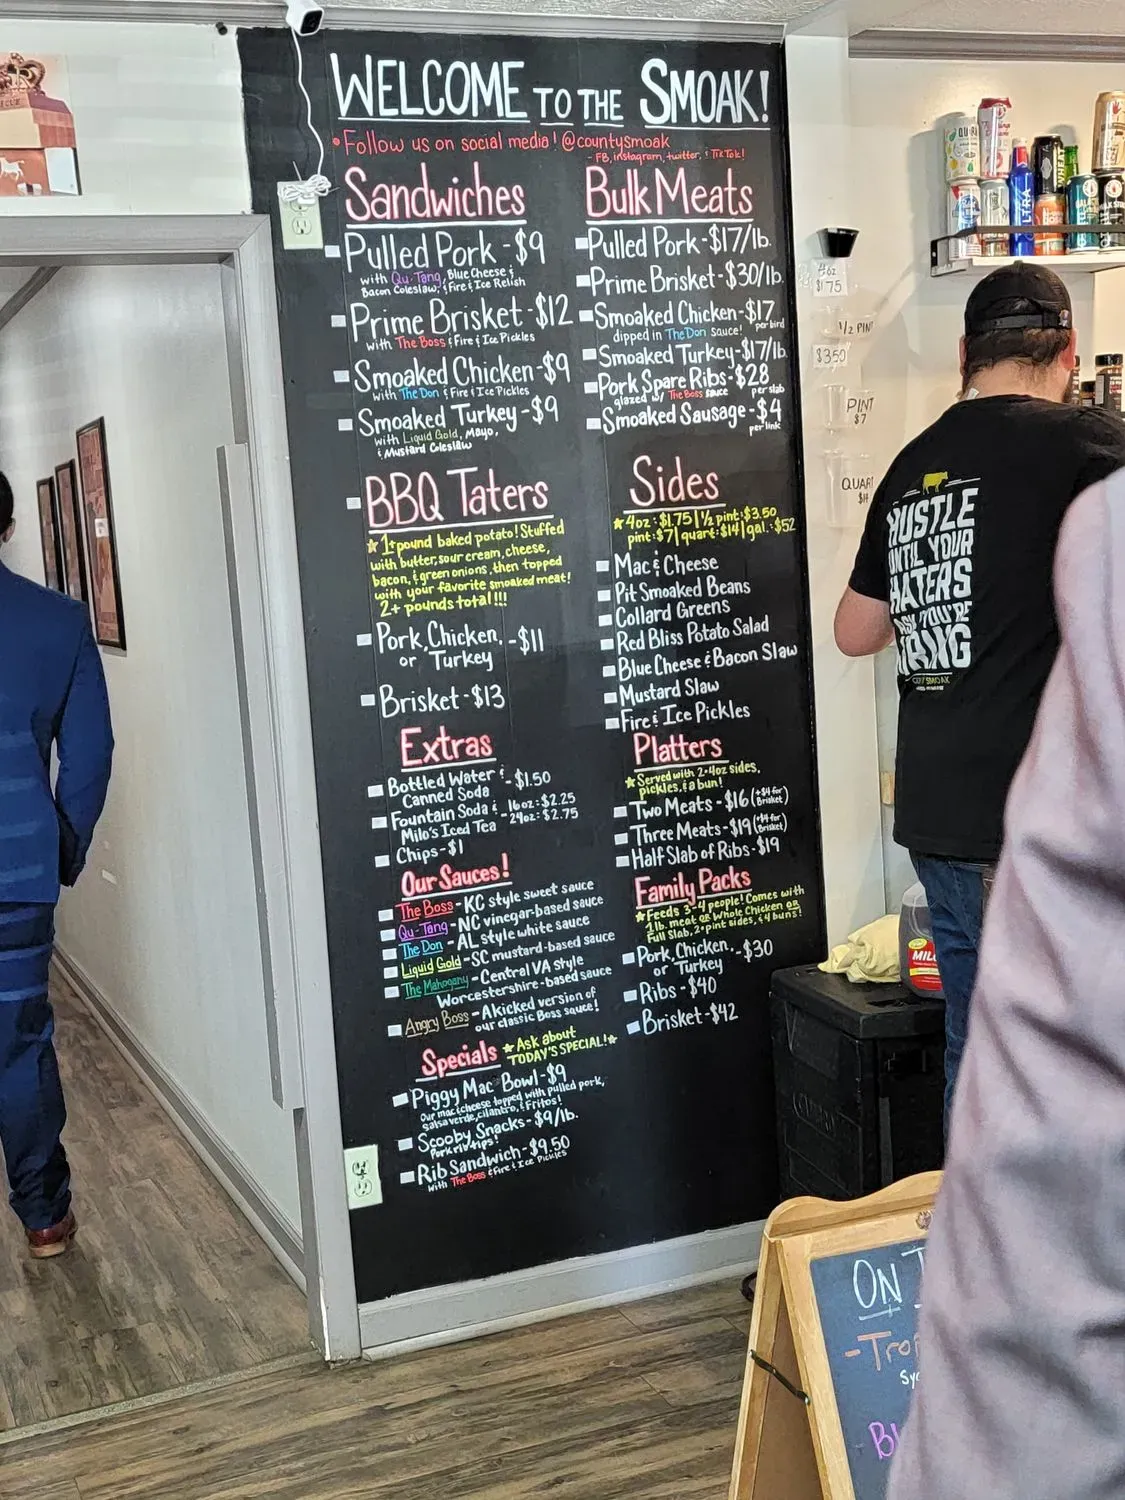 WELCOME TO THE SMOAK!
• Follow us on social media! @countysmoak
- FB, instagram, twitter, & TikTok!
Sandwiches
Pulled Pork - $9
with Qu-Tang, Blue Cheese &
Bacon Coleslaw, & Fire & Ice Relish
Prime Brisket - $12
with The Boss & Fire & Ice Pickles
Smoaked Chicken - $9
with The Don & Fire & Ice Pickles
Smoaked Turkey - $9
with Liquid Gold, Mayo,
& Mustard Coleslaw
BBQ Taters
★ 1+ pound baked potato! Stuffed
with butter, sour cream, cheese,
bacon, & green onions, then topped
with your favorite smoaked meat!
2+ pounds total!!!
Pork, Chicken, - $11
or Turkey
Brisket - $13
Extras
Bottled Water & - $1.50
Canned Soda
Fountain Soda & - 16oz: $2.25
Milo's Iced Tea - 24oz: $2.75
Chips - $1
Our Sauces!
The Boss - KC style sweet sauce
Qu-Tang - NC vinegar-based sauce
The Don - AL style white sauce
Liquid Gold - SC mustard-based sauce
The Mahogany - Central VA style
Worcestershire-based sauce
Angry Boss - A kicked version of
our classic Boss sauce!
Specials ★ Ask about
TODAY'S SPECIAL! ★
Piggy Mac Bowl - $9
Our mac & cheese topped with pulled pork,
salsa verde, cilantro, & Fritos!
Scooby Snacks - $9/lb.
Pork rib tips!
Rib Sandwich - $9.50
with The Boss & Fire & Ice Pickles
Bulk Meats
Pulled Pork - $17/lb.
Prime Brisket - $30/lb.
Smoaked Chicken - $17
dipped in The Don sauce! per bird
Smoaked Turkey - $17/lb.
Pork Spare Ribs - $28
glazed w/ The Boss sauce per slab
Smoaked Sausage - $4
per link
Sides
★ 4oz: $1.75 | ½ pint: $3.50
pint: $7 | quart: $14 | gal.: $52
Mac & Cheese
Pit Smoaked Beans
Collard Greens
Red Bliss Potato Salad
Blue Cheese & Bacon Slaw
Mustard Slaw
Fire & Ice Pickles
Platters
★ Served with 2-4oz sides,
pickles, & a bun!
Two Meats - $16 (+$4 for Brisket)
Three Meats - $19 (+$4 for Brisket)
Half Slab of Ribs - $19
Family Packs
★ Feeds 3-4 people! Comes with
1 lb. meat or Whole Chicken or
Full Slab, 2-pint sides, & 4 buns!
Pork, Chicken, - $30
or Turkey
Ribs - $40
Brisket - $42
4oz
$1.75
1/2 PINT
$3.50
PINT
$7
QUAR
HUSTLE
UNTIL YOUR
HATERS
ASK YOU'RE
HIRING
ULTRA
MILO
ON